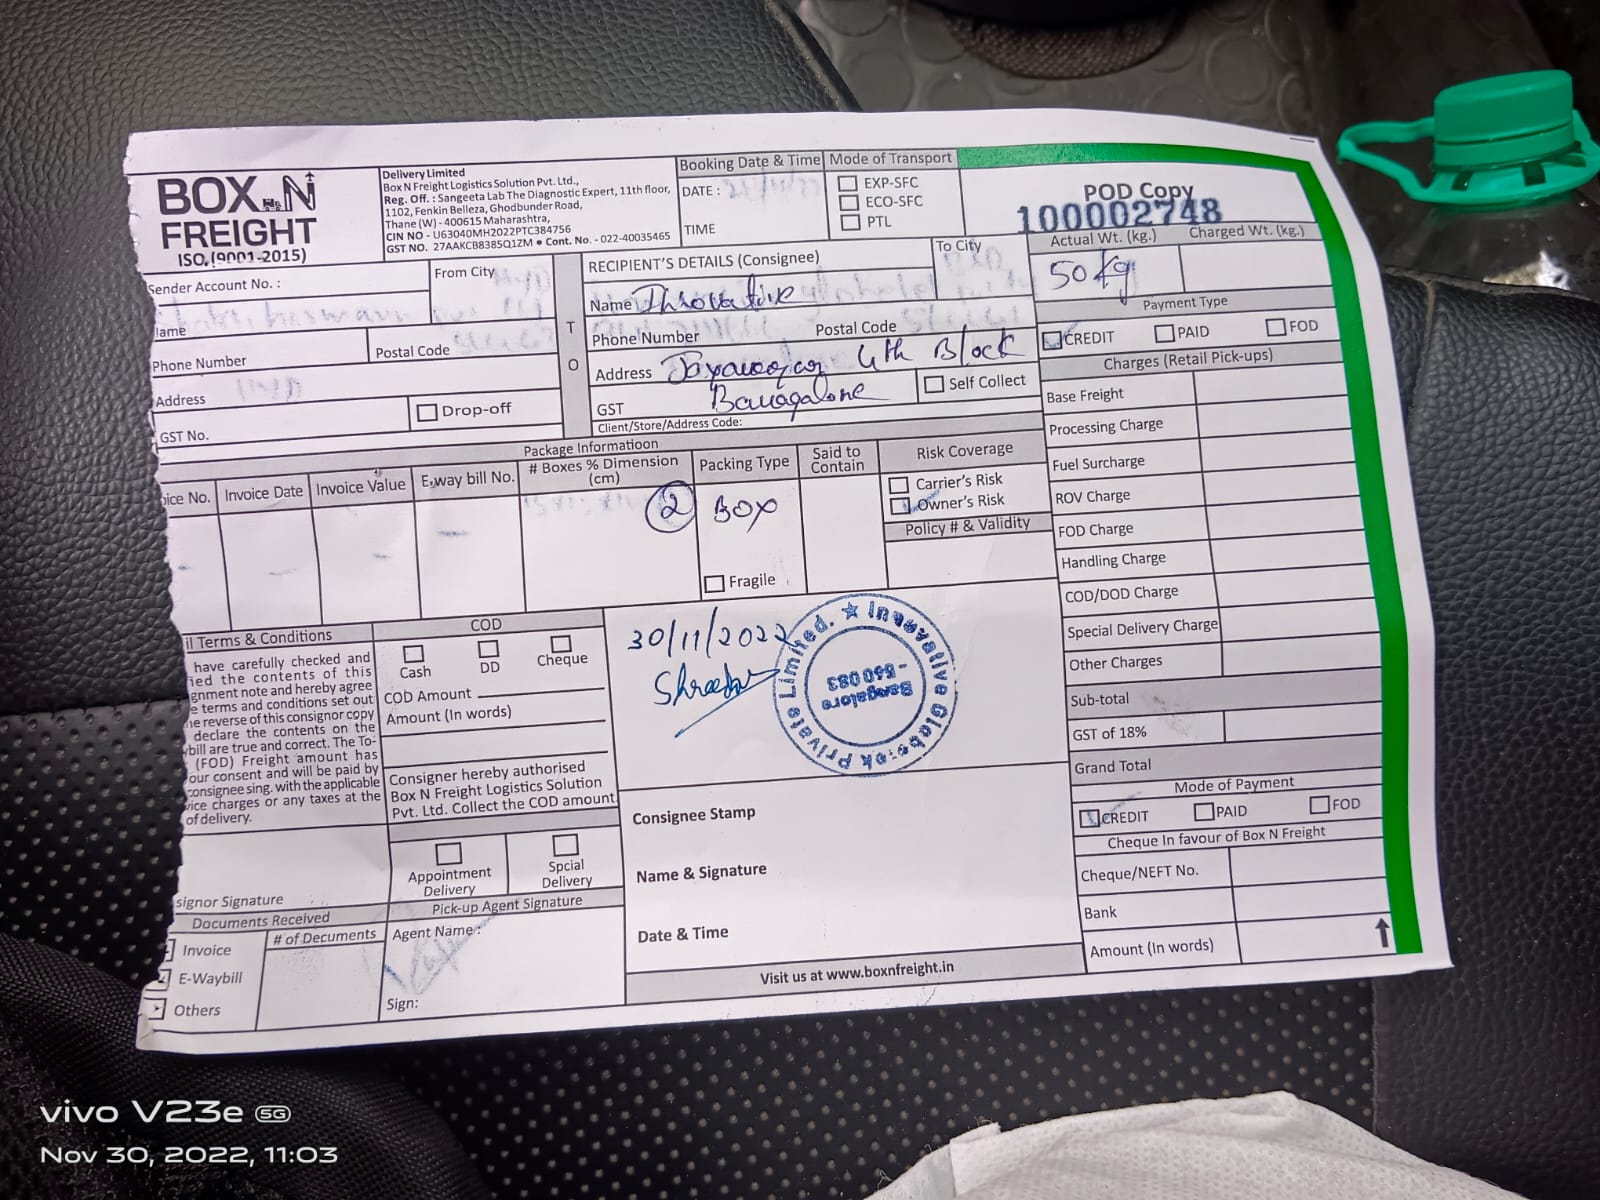 BOX N
FREIGHT
ISO, (9001-2015)
Delivery Limited
Box N Freight Logistics Solution Pvt. Ltd.,
Reg. Off. : Sangeeta Lab The Diagnostic Expert, 11th floor,
1102, Fenkin Belleza, Ghodbunder Road,
Thane (W) - 400615 Maharashtra,
CIN NO - U63040MH2022PTC384756
GST NO. 27AAKCB8385Q1ZM ● Cont. No. - 022-40035465
Booking Date & Time
DATE :
TIME
Mode of Transport
EXP-SFC
ECO-SFC
PTL
POD Copy
100002748
Sender Account No. :
From City
ame
Phone Number
Postal Code
Address
GST No.
Drop-off
T
O
RECIPIENT'S DETAILS (Consignee)
To City
Name
Phone Number
Postal Code
Address 4th Block
GST
Self Collect
Client/Store/Address Code:
Actual Wt. (kg.)
Charged Wt. (kg.)
50 Kg
Payment Type
CREDIT
PAID
FOD
Charges (Retail Pick-ups)
Base Freight
Processing Charge
Fuel Surcharge
ROV Charge
FOD Charge
Handling Charge
COD/DOD Charge
Special Delivery Charge
Other Charges
Sub-total
GST of 18%
Grand Total
Mode of Payment
CREDIT
PAID
FOD
Cheque In favour of Box N Freight
Cheque/NEFT No.
Bank
Amount (In words)
Package Informatioon
oice No.
Invoice Date
Invoice Value
E-way bill No.
# Boxes % Dimension
(cm)
Packing Type
Said to
Contain
Risk Coverage
2
BOX
Fragile
Carrier's Risk
Owner's Risk
Policy # & Validity
il Terms & Conditions
have carefully checked and
ied the contents of this
gnment note and hereby agree
e terms and conditions set out
he reverse of this consignor copy
declare the contents on the
bill are true and correct. The To-
(FOD) Freight amount has
our consent and will be paid by
consignee sing. with the applicable
vice charges or any taxes at the
of delivery.
signor Signature
COD
Cash
DD
Cheque
COD Amount
Amount (In words)
Consigner hereby authorised
Box N Freight Logistics Solution
Pvt. Ltd. Collect the COD amount
Appointment
Delivery
Spcial
Delivery
Documents Received
Invoice
E-Waybill
Others
# of Decuments
Pick-up Agent Signature
Agent Name :
Sign:
30/11/2022
Innovative Globetek Private Limited.
Bangalore
- 560083
Consignee Stamp
Name & Signature
Date & Time
Visit us at www.boxnfreight.in
vivo V23e 5G
Nov 30, 2022, 11:03